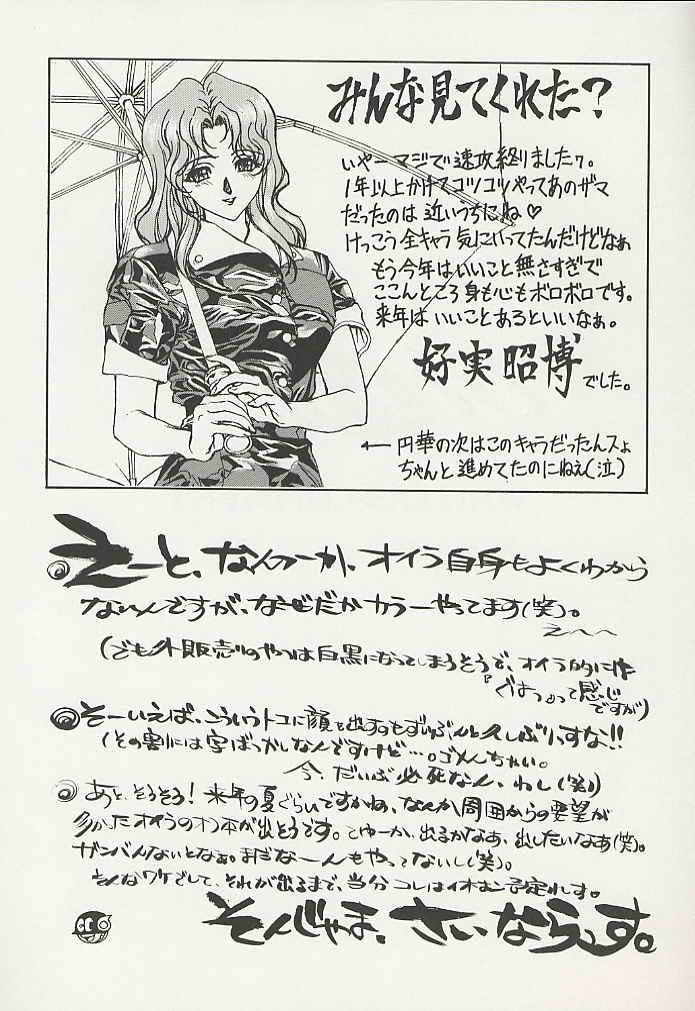 みんな見てくれた?
いやーマジで速攻終りましたァ。
1年以上かけてコツコツやってあのザマ
だったのは近いうちにね♡
けっこう全キャラ気にいってたんだけどなぁ
もう今年はいいこと無さすぎで
ここんところ身も心もボロボロです。
来年はいいことあるといいなぁ。
好実昭博でした。
← 円華の次はこのキャラだったんスよ
ちゃんと進めてたのにねえ(泣)
えーと、なんつーか、オイラ自身もよくわから
ないんですが、なぜだかカラーやってます(笑)。
え〜〜
(でも外販売りのやつは白黒になってしまうそうで、オイラ的に
『ぐはっ』って感じ
ですが)
そーいえば、こういうトコに顔を出すのもずいぶんと久しぶりっすな!!
(その割には字ばっかしなんですけど…。ゴメんちゃい。
今、だいぶ必死なん、わし(笑))
あと、そうそう!来年の夏ぐらいですかね、なんか周囲からの要望が
多かったオイラのオフ本が出そうです。とゆーか、出るかなあ、出したいなあ(笑)。
ガンバんないとなぁ。まだなーんもやってないし(笑)。
そんなワケでして、それが出るまで、当分コレは予定れす。
そんじゃま、さいならっす。